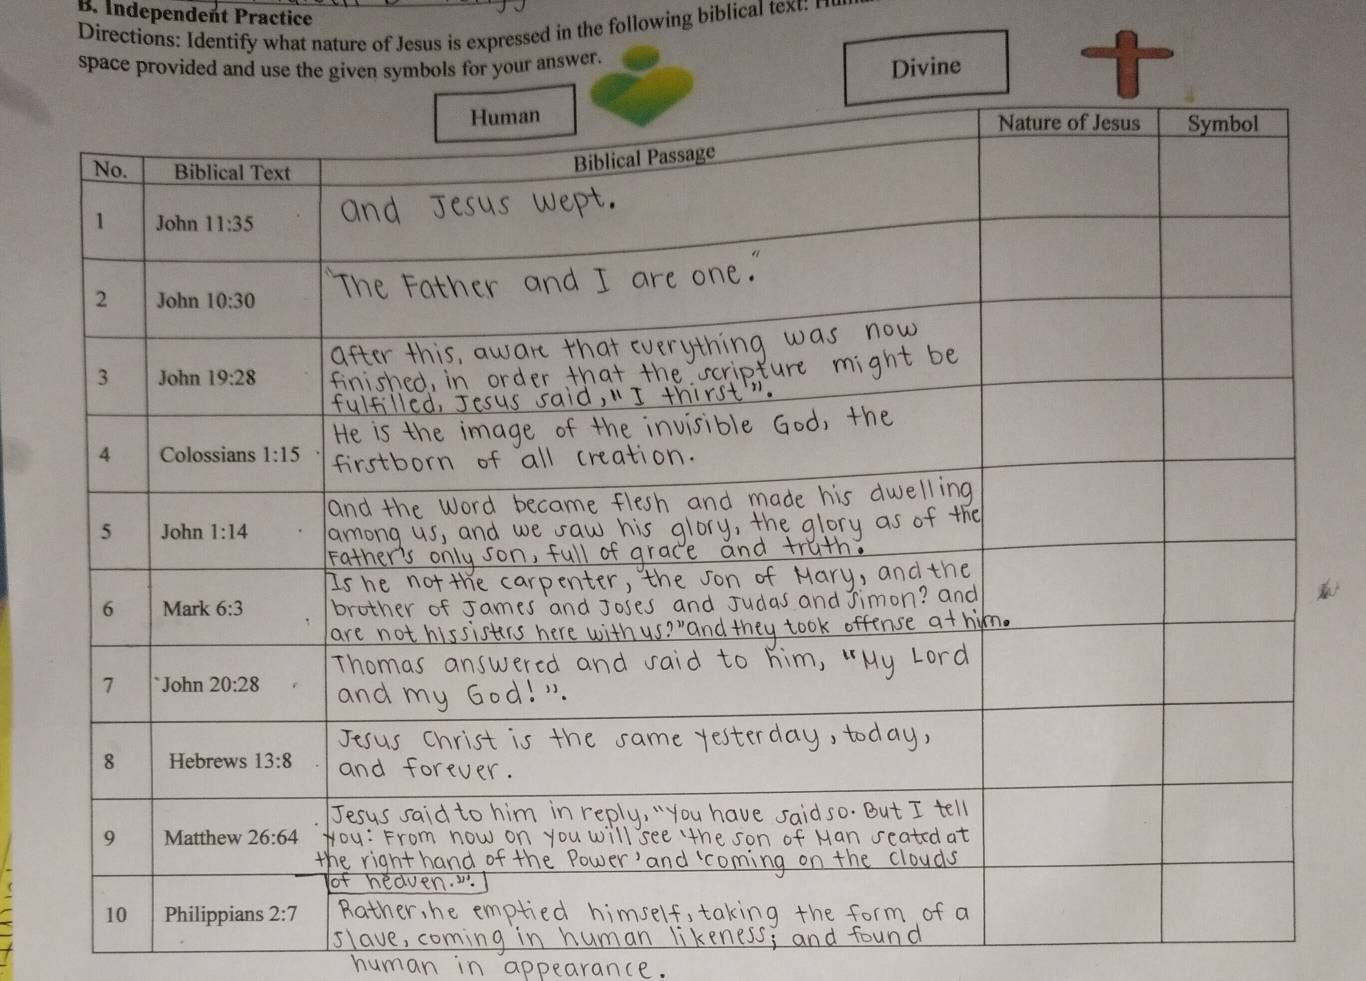 B. Independent Practice
Directions: Identify what nature of Jesus is expressed in the following biblical text:
space provided and use the given symbols for your answer.
Human
Divine
No.
Biblical Text
Biblical Passage
Nature of Jesus
Symbol
1
John 11:35
and Jesus wept.
2
John 10:30
"The Father and I are one."
3
John 19:28
after this, aware that everything was now
finished, in order that the scripture might be
fulfilled, Jesus said, "I thirst".
4
Colossians 1:15
He is the image of the invisible God, the
firstborn of all creation.
5
John 1:14
and the Word became flesh and made his dwelling
among us, and we saw his glory, the glory as of the
Father's only son, full of grace and truth.
6
Mark 6:3
Is he not the carpenter, the son of Mary, and the
brother of James and Joses and Judas and Simon? and
are not his sisters here with us?" and they took offense at him.
7
John 20:28
Thomas answered and said to him, "My Lord
and my God!".
8
Hebrews 13:8
Jesus Christ is the same yesterday, today,
and forever.
9
Matthew 26:64
Jesus said to him in reply, "You have said so. But I tell
you: From now on you will see 'the son of Man seated at
the right hand of the Power' and 'coming on the clouds
of heaven.'".
10
Philippians 2:7
Rather, he emptied himself, taking the form of a
slave, coming in human likeness; and found
human in appearance.